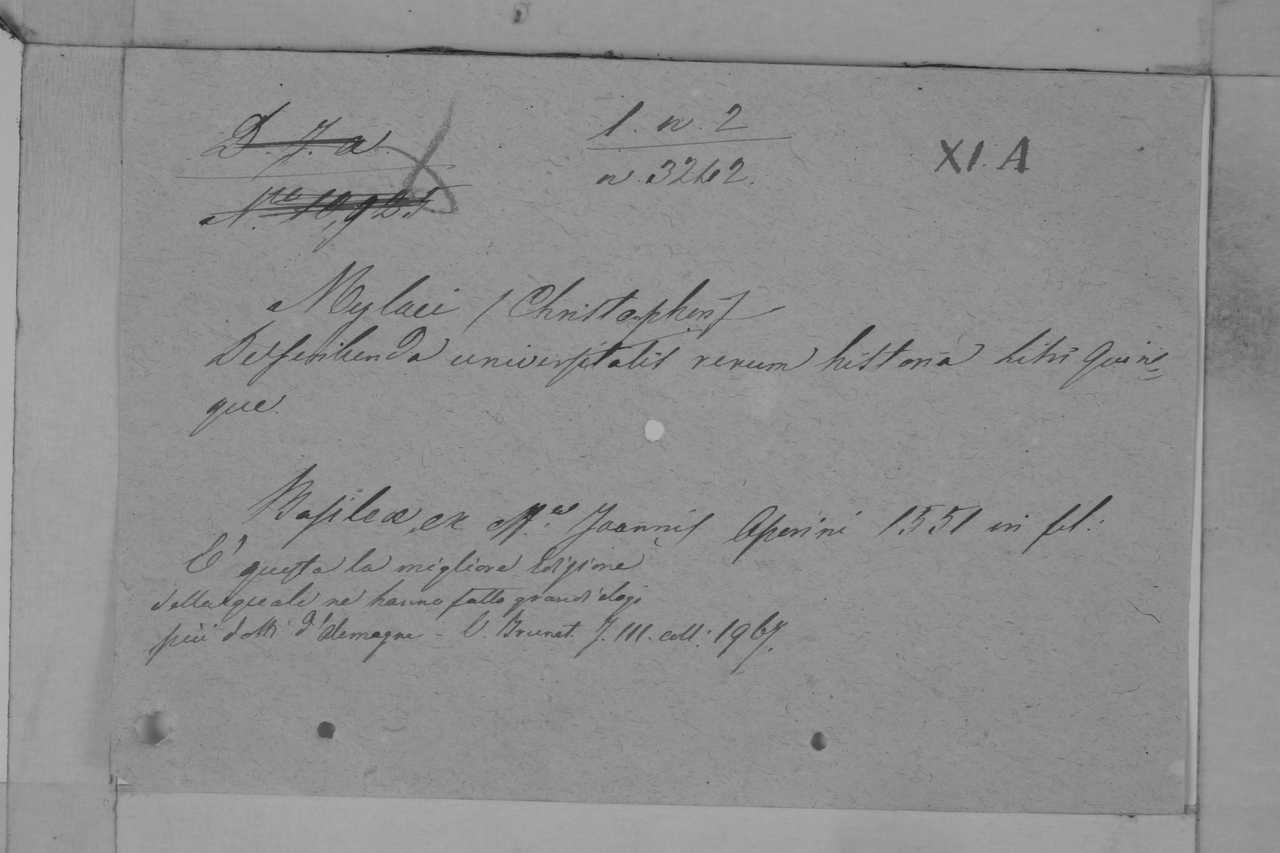 D. J. a
l. n. 2
XI. A
n. 3242.
Mylaei (Christophori)
De scribenda universitatis rerum historia libri quin=
que.
Basileae, ex Joannis Oporini 1551 in fol.
E' questa la migliore edizione
della quale ne hanno fatto grandi elogi
più dotti d'Alemagna - V. Brunet. T. III. coll: 1967.